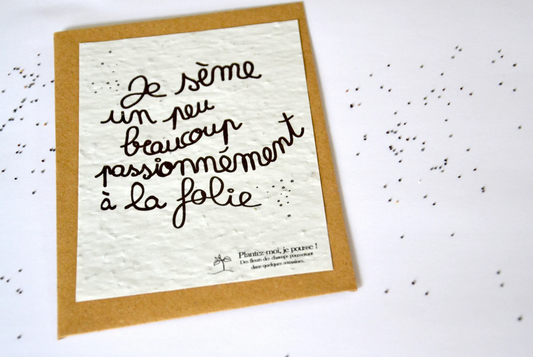 Je sème
un peu
beaucoup
passionnément
à la folie
Plantez-moi, je pousse !
Des fleurs des champs pousseront
dans quelques semaines.